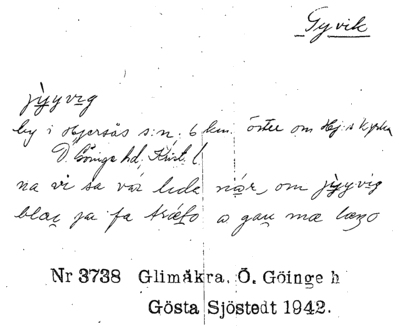 Gyvik
jy̤yvig
by i Hjersås s:n. 6 km. öster om Hj:s kyrka
Ö. Göinge hd, Krist. l.
na vi sa vär lide när, om jy̤yvig
blau ja fa a gau mæ
Nr 3738 Glimåkra, Ö. Göinge h
Gösta Sjöstedt 1942.